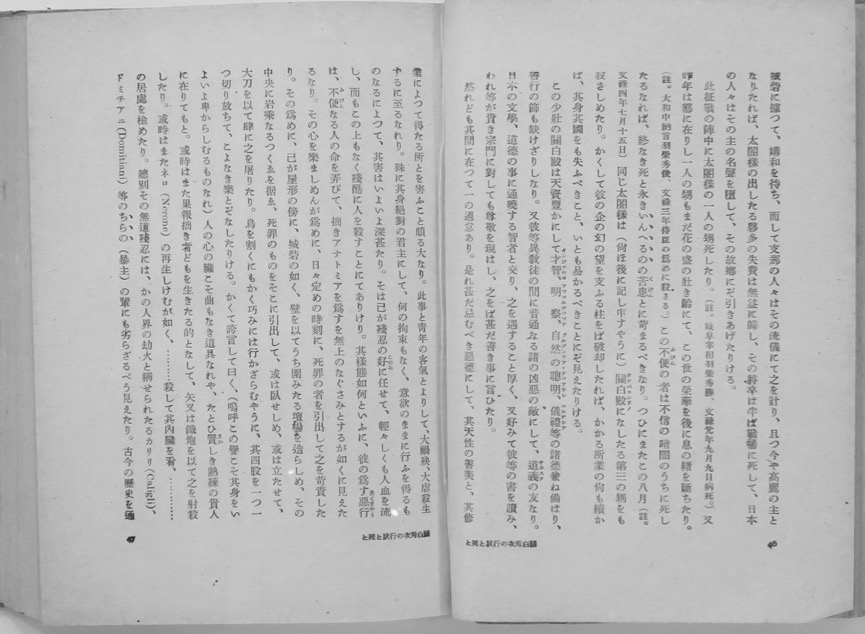 城砦に據つて、媾和を待ち、而して支那の人々はその流儀にて之を計り、且つ今や高麗の主と
なりたれば、太閤樣の出したる夥多の失費は無益に歸し、その將卒は半ば戰場に死して、日本
の人々はその主の名聲を墮して、その故鄕にぞ引きあげたりける。
此征戰の陣中に太閤樣の一人の甥死したり。(註。岐阜宰相羽柴秀勝、文祿元年九月九日病死。)又
昨年は都に在りし一人の甥もまだ花の盛の壯き齡にて、この世の榮華を後に息の緖を斷ちたり。
(註。大和中納言羽柴秀俊、文祿三年侍臣の爲めに殺さる。)この不便の者は不信の暗闇のうちに死し
たるなれば、終なき死と永きいんへるのの苦患とに苛まるべきなり。つひにまたこの八月(註。
文祿四年七月十五日)同じ太閤樣は(何ほ後に記し申すやうに)關白殿になしたる第三の甥をも
殺さしめたり。かくして彼の企の幻の望を支ふる柱をば破却したれば、かかる所業の尙も續か
ば、其身其國をも失ふべきこと、いとも易かるべきことにぞ見えたりける。
この少壯の關白殿は天資豊かにして才智、明察、自然の聰明、儀禮等の諸德兼ね備はり、
善行の節も缺けざりしなり。又彼等異敎徒の間に普通なる諸の凶惡の敵にして、道義の友なり。
日本の文學、道德の事に通曉する智者と交り、之を遇すること厚く、又好みて彼等の書を讀み、
われ等が貴き宗門に對しても尊敬を現はし、之をば甚だ善き事に言ひたり。
然れども其間に在つて一の過怠あり。是れ甚だ忌むべき惡德にして、其天性の善美と、其修
關白秀次の行狀と死と
46
業によつて得たる所とを害ふこと頗る大なり。此事と靑年の客氣とよりして、大禍殃、大虐殺生
するに至るなれり。殊に其身絕對の君主にして、何の拘束もなく、意欲のままに行ふを得るも
のなるによつて、其害はいよいよ深甚たり。そは己が殘忍の好に任せて、輕々しくも人血を流
し、而もこの上もなく殘酷に人を殺すことにてありけり。其樣態如何といふに、彼の爲す惡行
は、不便なる人の命を弄びて、拙きアナトミアを爲すを無上のなぐさみとするが如くに見えた
るなり。その心を樂ましめんが爲めに、日々定めの時刻に、死罪の者を引出して之を苛責した
り。その爲めに、己が屋形の傍に、城砦の如く、壁を以てうち圍みたる壇場を造らしめ、その
中央に岩乘なるつくゑを据ゑ、死罪のものをそこに引出して、或は臥せしめ、或は立たせて、
大刀を以て肆に之を屠りたり。鳥を割くにもかく巧みには行かざらむやうに、其四股を一つ一
つ切り放ちて、こよなき樂とぞなしたりける。かくて誇言して曰く、(嗚呼この譽こそ其身をい
よいよ卑からしむるものなれ)人の心の臟こそ曲もなき道具なれや、たとひ賢しき熟練の貴人
に在りてもと。或時はまた果報拙き者どもを生きたる的となして、矢又は鐵炮を以て之を射殺
したり。或時はまたネロ(Nerone)の再生しけむが如く、………殺して其内臟を看、…………
の居處を檢めたり。總別その無道殘忍には、かの人界の劫火と稱せられたるカリリ(Caligli)、
ドミチアニ(Domitiani)等のちらの(暴主)の輩にも劣らざるべう見えたり。古今の歷史を通
關白秀次の行狀と死と
47